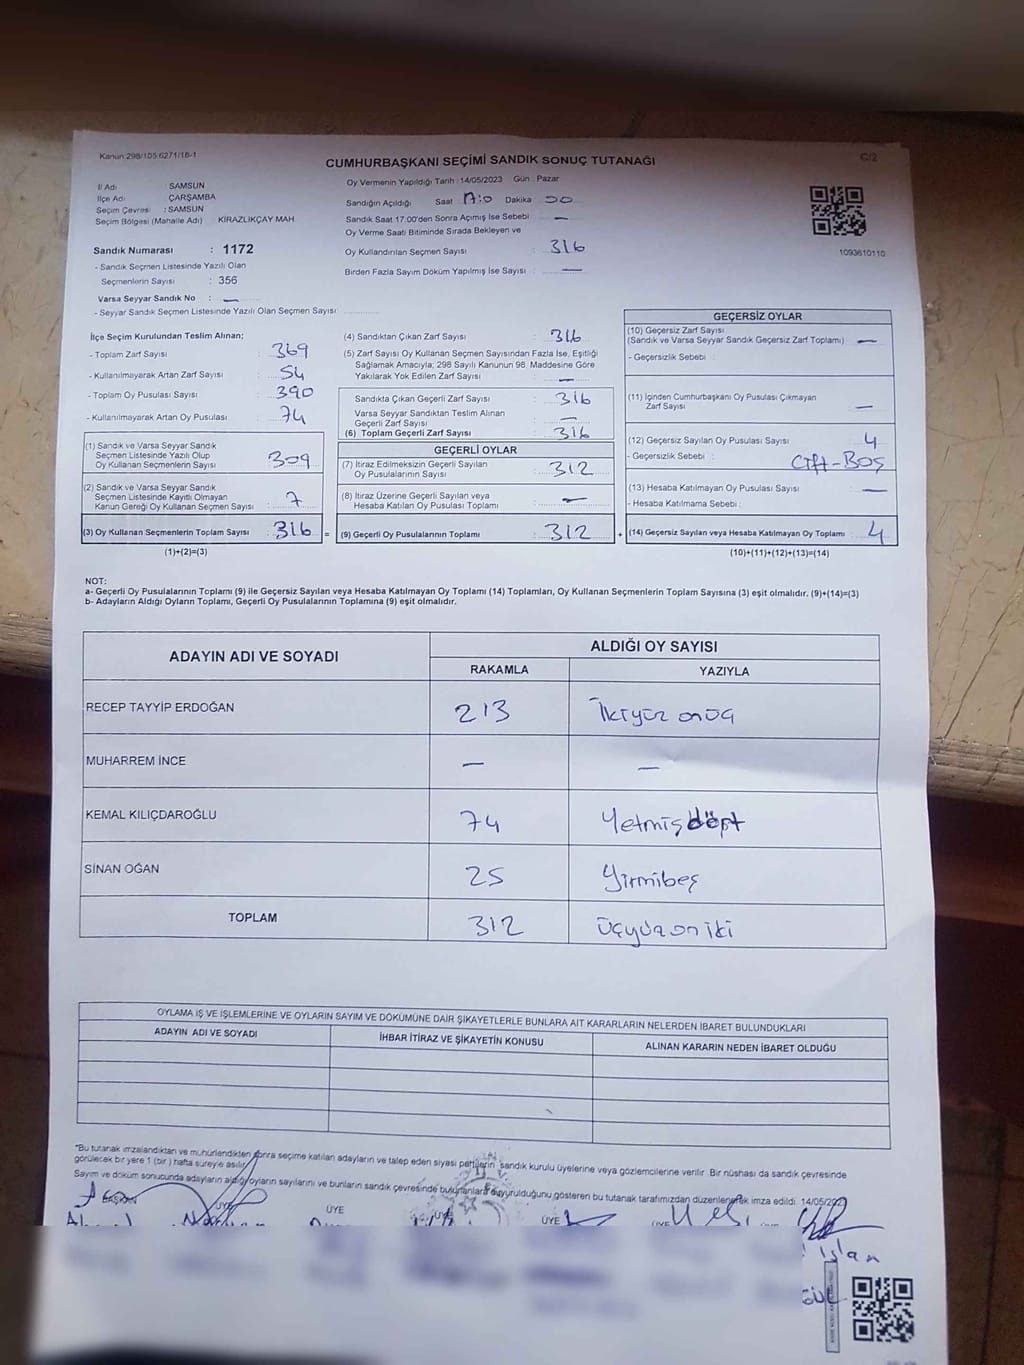 Kanun:298/105:6271/16-1
C/2
CUMHURBAŞKANI SEÇİMİ SANDIK SONUÇ TUTANAĞI
İl Adı SAMSUN
İlçe Adı ÇARŞAMBA
Seçim Çevresi : SAMSUN
Seçim Bölgesi (Mahalle Adı) KİRAZLIKÇAY MAH
Sandık Numarası : 1172
- Sandık Seçmen Listesinde Yazılı Olan
Seçmenlerin Sayısı : 356
Varsa Seyyar Sandık No : —
- Seyyar Sandık Seçmen Listesinde Yazılı Olan Seçmen Sayısı:
Oy Vermenin Yapıldığı Tarih :14/05/2023 Gün Pazar
Sandığın Açıldığı Saat Dakika
Sandık Saat 17:00'den Sonra Açılmış İse Sebebi —
Oy Verme Saati Bitiminde Sırada Bekleyen ve
Oy Kullandırılan Seçmen Sayısı : 316
Birden Fazla Sayım Döküm Yapılmış İse Sayısı : —
1093610110
İlçe Seçim Kurulundan Teslim Alınan;
- Toplam Zarf Sayısı : 369
- Kullanılmayarak Artan Zarf Sayısı : 54
- Toplam Oy Pusulası Sayısı : 390
- Kullanılmayarak Artan Oy Pusulası : 74
(1) Sandık ve Varsa Seyyar Sandık
Seçmen Listesinde Yazılı Olup
Oy Kullanan Seçmenlerin Sayısı : 309
(2) Sandık ve Varsa Seyyar Sandık
Seçmen Listesinde Kayıtlı Olmayan
Kanun Gereği Oy Kullanan Seçmen Sayısı : 7
(3) Oy Kullanan Seçmenlerin Toplam Sayısı : 316
(1)+(2)=(3)
(4) Sandıktan Çıkan Zarf Sayısı : 316
(5) Zarf Sayısı Oy Kullanan Seçmen Sayısından Fazla İse, Eşitliği
Sağlamak Amacıyla; 298 Sayılı Kanunun 98. Maddesine Göre
Yakılarak Yok Edilen Zarf Sayısı : —
Sandıkta Çıkan Geçerli Zarf Sayısı : 316
Varsa Seyyar Sandıktan Teslim Alınan
Geçerli Zarf Sayısı : —
(6) Toplam Geçerli Zarf Sayısı : 316
GEÇERLİ OYLAR
(7) İtiraz Edilmeksizin Geçerli Sayılan
Oy Pusulalarının Sayısı : 312
(8) İtiraz Üzerine Geçerli Sayılan veya
Hesaba Katılan Oy Pusulası Toplamı : —
= (9) Geçerli Oy Pusulalarının Toplamı : 312
GEÇERSİZ OYLAR
(10) Geçersiz Zarf Sayısı
(Sandık ve Varsa Seyyar Sandık Geçersiz Zarf Toplamı) —
- Geçersizlik Sebebi :
(11) İçinden Cumhurbaşkanı Oy Pusulası Çıkmayan
Zarf Sayısı : —
(12) Geçersiz Sayılan Oy Pusulası Sayısı : 4
- Geçersizlik Sebebi : Çift-Boş
(13) Hesaba Katılmayan Oy Pusulası Sayısı : —
- Hesaba Katılmama Sebebi :
+ (14) Geçersiz Sayılan veya Hesaba Katılmayan Oy Toplamı 4
(10)+(11)+(12)+(13)=(14)
NOT:
a- Geçerli Oy Pusulalarının Toplamı (9) ile Geçersiz Sayılan veya Hesaba Katılmayan Oy Toplamı (14) Toplamları, Oy Kullanan Seçmenlerin Toplam Sayısına (3) eşit olmalıdır. (9)+(14)=(3)
b- Adayların Aldığı Oyların Toplamı, Geçerli Oy Pusulalarının Toplamına (9) eşit olmalıdır.
ADAYIN ADI VE SOYADI
ALDIĞI OY SAYISI
RAKAMLA YAZIYLA
RECEP TAYYİP ERDOĞAN 213 İkiyüz onüç
MUHARREM İNCE — —
KEMAL KILIÇDAROĞLU 74 Yetmişdört
SİNAN OĞAN 25 Yirmibeş
TOPLAM 312 üçyüz on iki
OYLAMA İŞ VE İŞLEMLERİNE VE OYLARIN SAYIM VE DÖKÜMÜNE DAİR ŞİKAYETLERLE BUNLARA AİT KARARLARIN NELERDEN İBARET BULUNDUKLARI
ADAYIN ADI VE SOYADI İHBAR İTİRAZ VE ŞİKAYETİN KONUSU ALINAN KARARIN NEDEN İBARET OLDUĞU
*Bu tutanak imzalandıktan ve mühürlendikten sonra seçime katılan adayların ve talep eden siyasi partilerin sandık kurulu üyelerine veya gözlemcilerine verilir. Bir nüshası da sandık çevresinde
görülecek bir yere 1 (bir) hafta süreyle asılır.
Sayım ve döküm sonucunda adayların aldığı oyların sayılarını ve bunların sandık çevresinde bulunanlara duyurulduğunu gösteren bu tutanak tarafımızdan düzenlenerek imza edildi. 14/05/2023
BAŞKAN ÜYE ÜYE ÜYE ÜYE ÜYE ÜYE